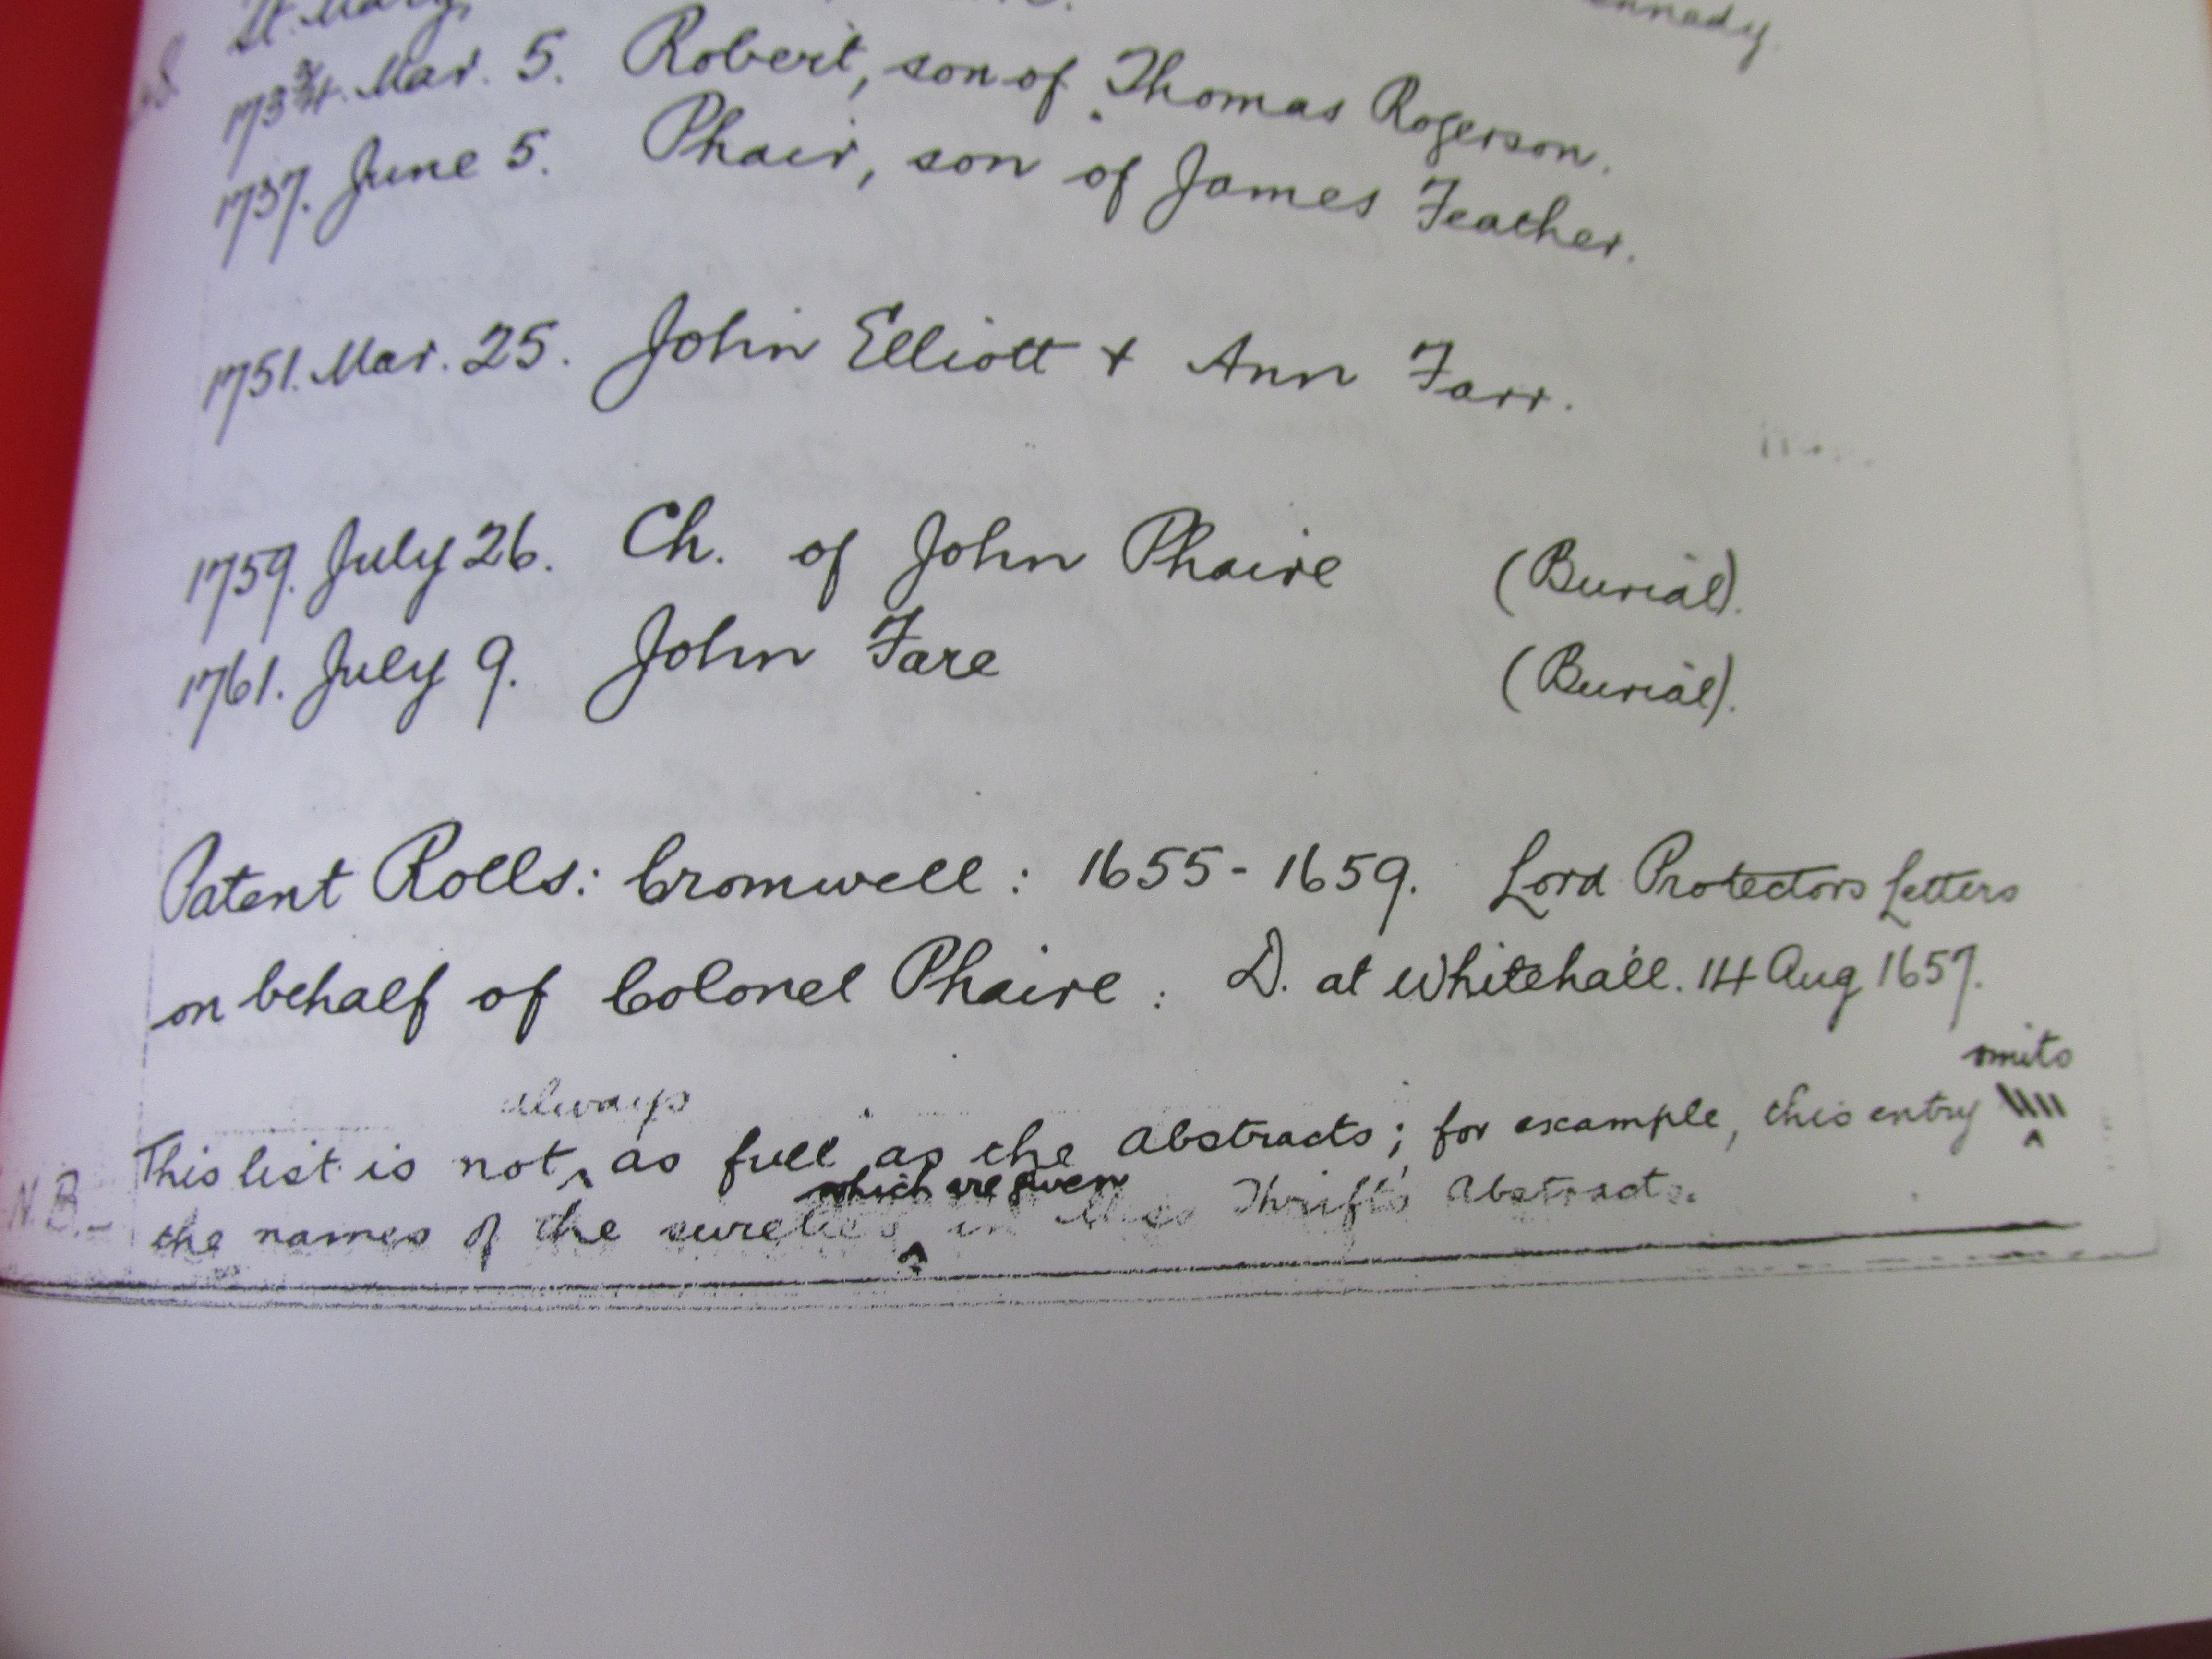 St. Mary,
173¾. Mar. 5. Robert, son of Thomas Rogerson.
1737. June 5. Phair, son of James Feather.
1751. Mar. 25. John Elliott + Ann Farr.
1759. July 26. Ch. of John Phaire (Burial).
1761. July 9. John Fare (Burial).
Patent Rolls: Cromwell: 1655-1659. Lord Protectors Letters
on behalf of Colonel Phaire: D. at Whitehall. 14 Aug 1657.
omits
always
This list is not as full as the Abstracts; for example, this entry
which are given
N.B.- the names of the sureties in Miss Thrift's Abstracts.